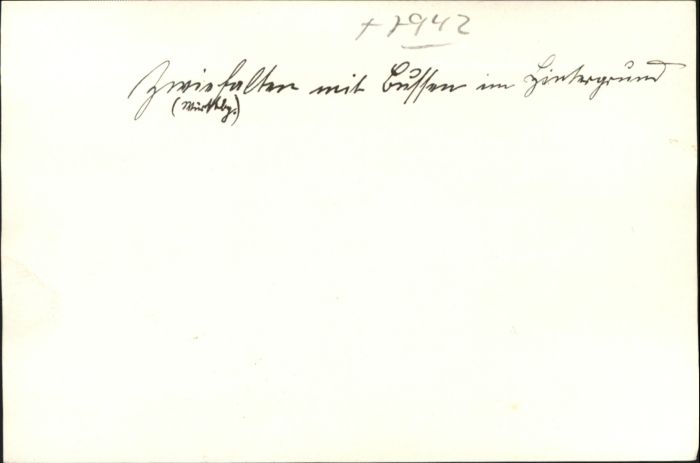 + 7942
Zwiefalten mit Bussen im Hintergrund
(Württbg.)